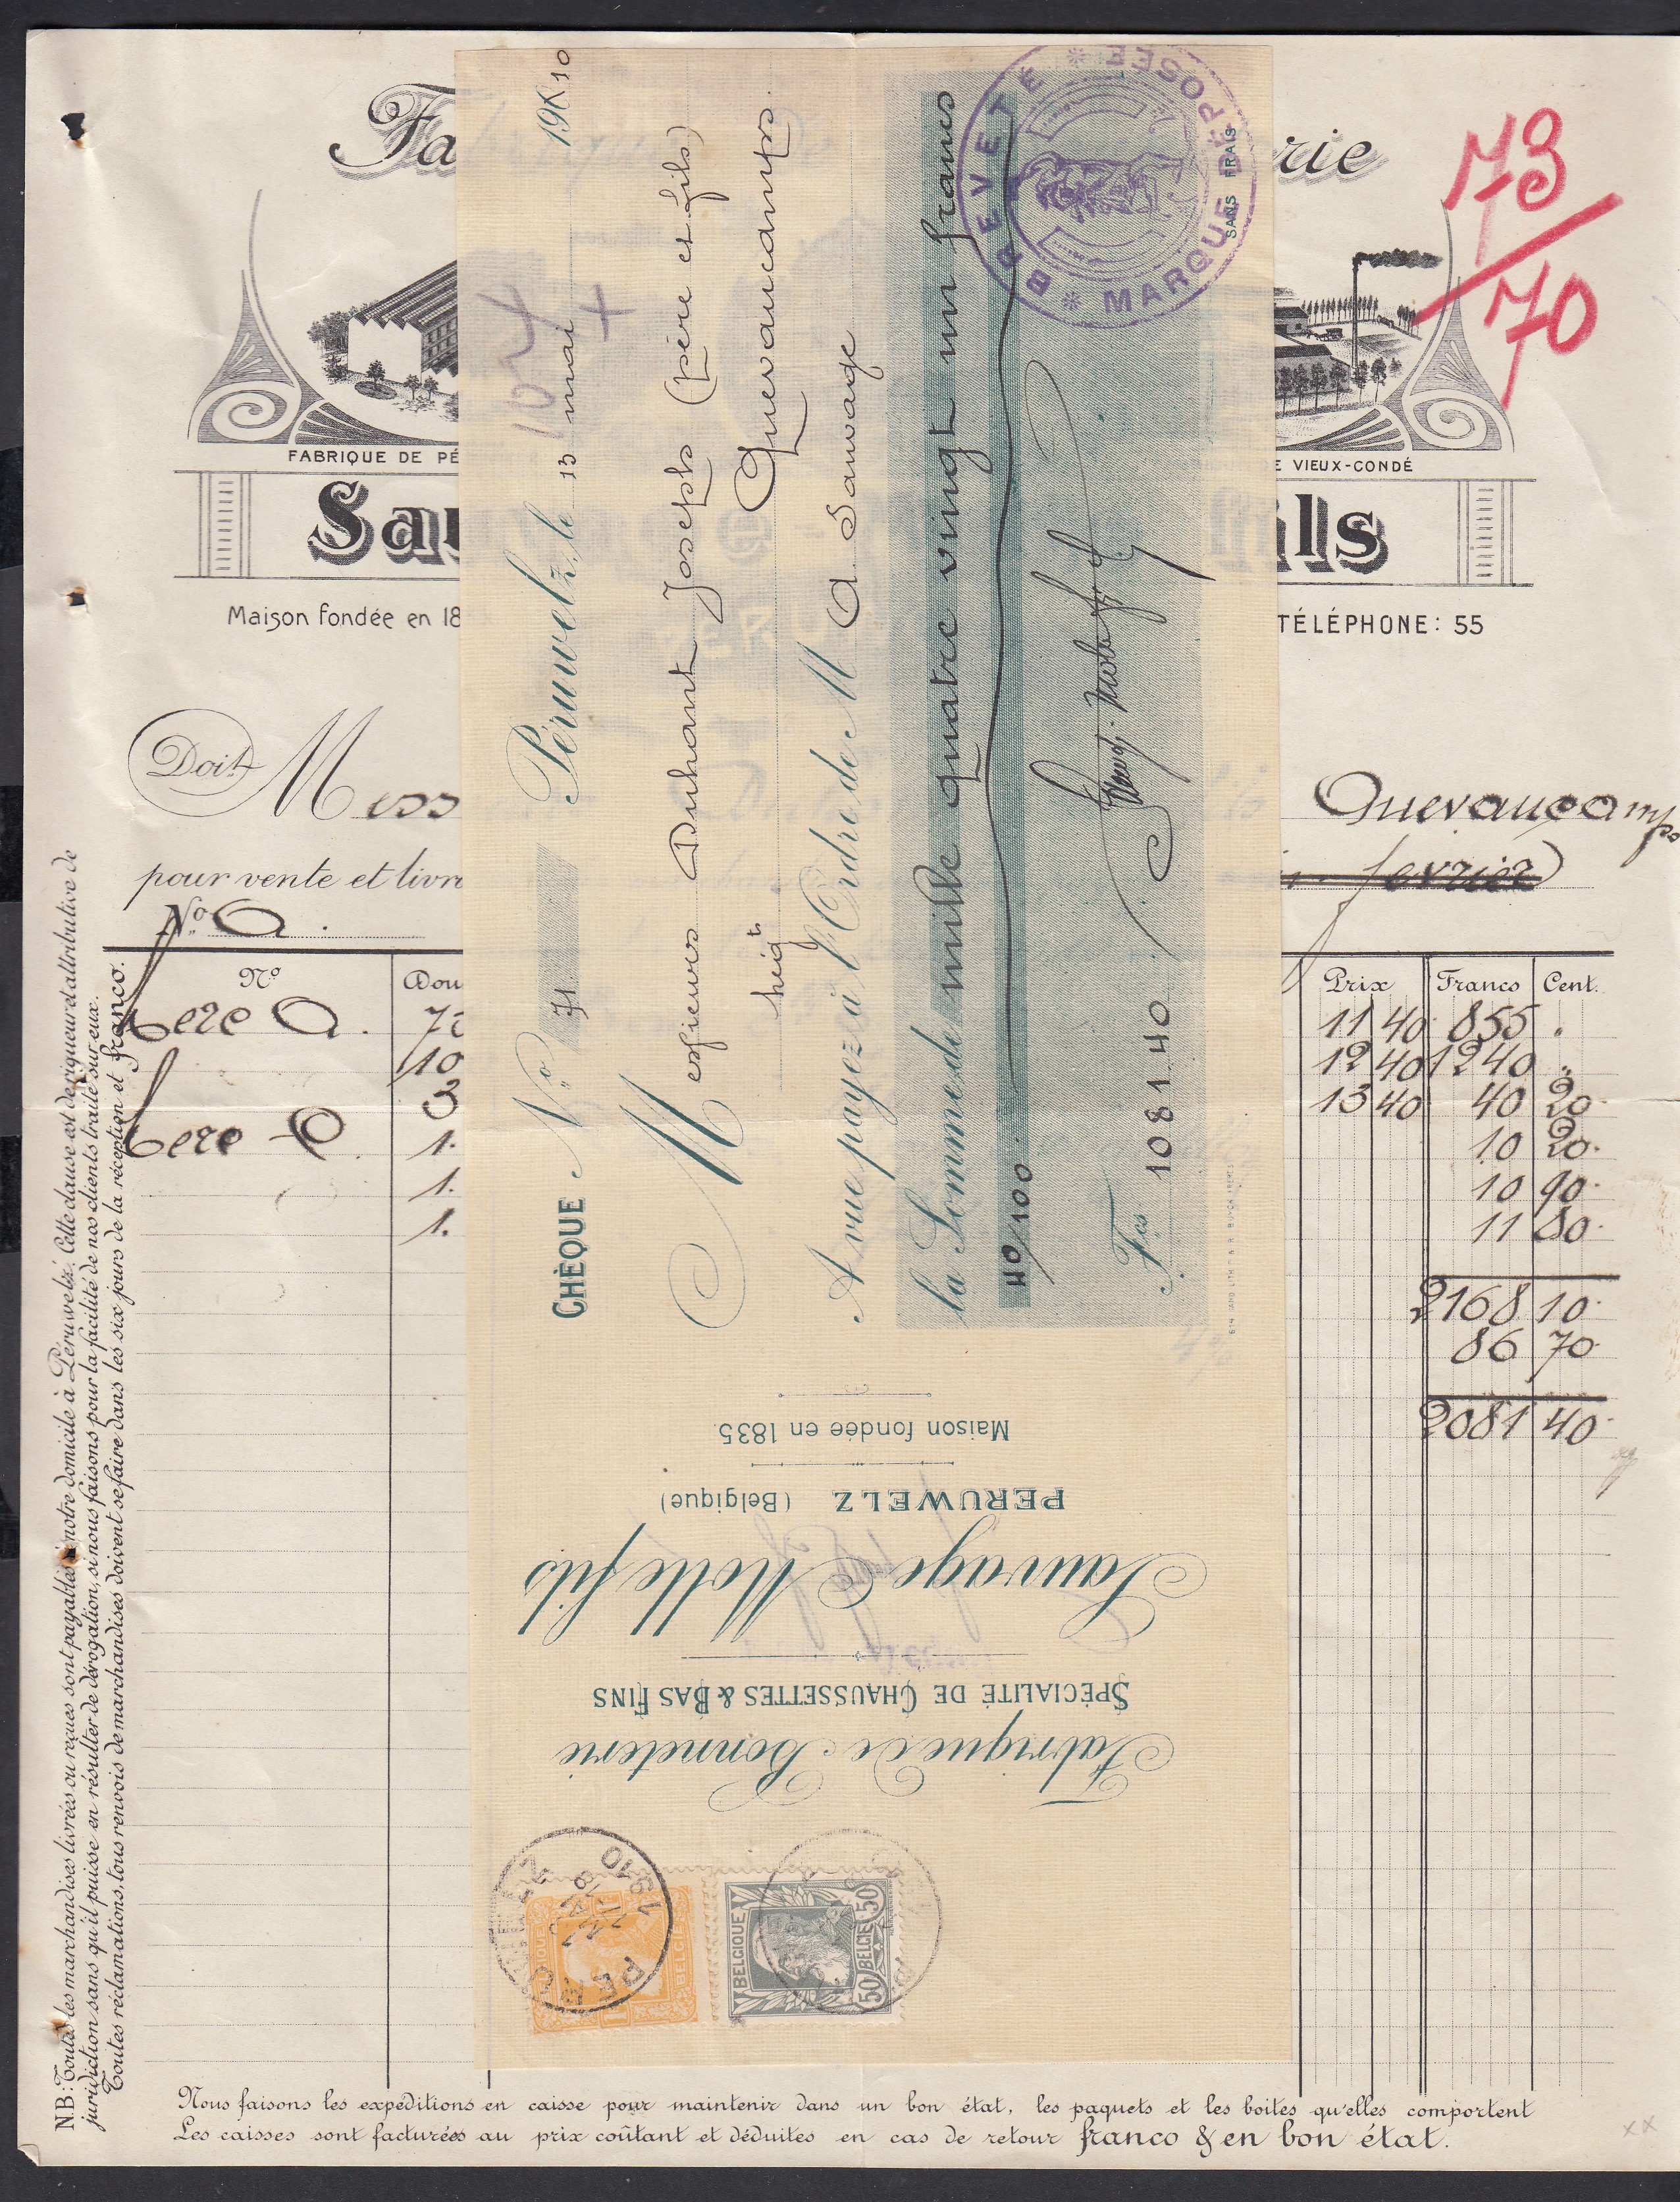 Fa
rie
73
70
FABRIQUE DE PÉ
E VIEUX-CONDÉ
Sau
ils
Maison fondée en 18
TÉLÉPHONE: 55
Doit M ess
Quevaucamps
pour vente et livr
fevrier
No A.
No
Dou
Prix
Francs
Cent.
A.
11 40 855 .
10
12 40 1240 "
3
13 40 40 20
1.
10 20
1.
10 90
1.
11 80
2168 10
86 70
2081 40
N.B: Toutes les marchandises livrées ou reçues sont payables à notre domicile à Péruwelz. Cette clause est de rigueur et attributive de
juridiction sans qu'il puisse en résulter de dérogation, si nous faisons pour la facilité de nos clients traite sur eux.
Toutes réclamations, tous renvois de marchandises doivent se faire dans les six jours de la réception et franco.
CHÈQUE No 71 Péruwelz, le 13 mai 1910
104
+
M essieurs Duhant Joseph (père et fils)
négts Quevaucamps.
A vue payez à l'Ordre de M A Sauvage
la Somme de mille quatre vingt un francs
40/100.
Fcs 1081.40
SANS FRAIS
BREVETÉ * MARQUE DÉPOSÉE *
Fabrique de Bonneterie
SPÉCIALITÉ DE CHAUSSETTES & BAS FINS
Sauvage Molle fils
PERUWELZ (Belgique)
Maison fondée en 1835
PERUWELZ
1910
BELGIE
BELGIQUE
50 BELGIE 50
Nous faisons les expéditions en caisse pour maintenir dans un bon état, les paquets et les boites qu'elles comportent
Les caisses sont facturées au prix coûtant et déduites en cas de retour franco & en bon état.